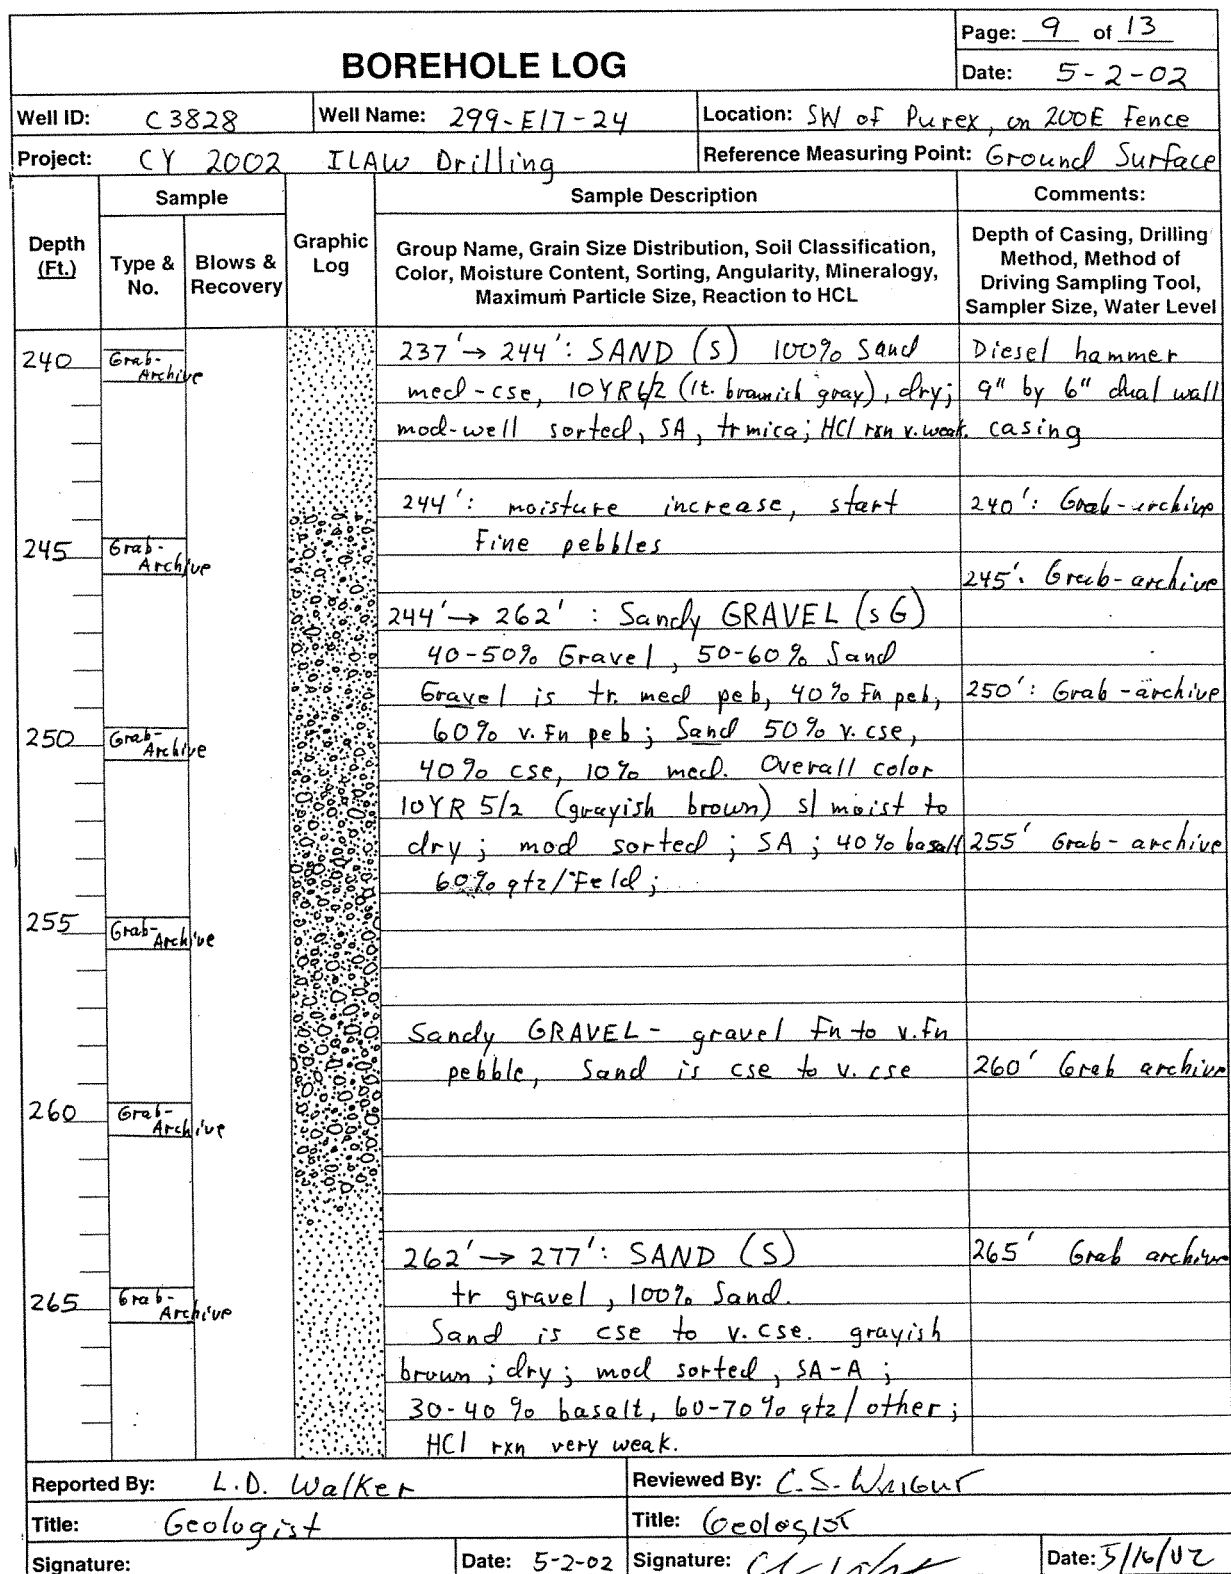 BOREHOLE LOG
Page: 9 of 13
Date: 5-2-02
Well ID: C3828
Well Name: 299-E17-24
Location: SW of Purex, on 200E Fence
Project: CY 2002 ILAW Drilling
Reference Measuring Point: Ground Surface
Depth (Ft.)
Sample
Type & No.
Blows & Recovery
Graphic Log
Sample Description
Group Name, Grain Size Distribution, Soil Classification,
Color, Moisture Content, Sorting, Angularity, Mineralogy,
Maximum Particle Size, Reaction to HCL
Comments:
Depth of Casing, Drilling
Method, Method of
Driving Sampling Tool,
Sampler Size, Water Level
240 Grab-Archive
237' → 244': SAND (S) 100% Sand
med-cse, 10YR 6/2 (lt. brownish gray), dry;
mod-well sorted, SA, tr mica; HCl rxn v. weak.
Diesel hammer
9" by 6" dual wall
casing
244': moisture increase, start
Fine pebbles
240': Grab-archive
245 Grab-Archive
245': Grab-archive
244' → 262' : Sandy GRAVEL (sG)
40-50% Gravel, 50-60% Sand
Gravel is tr. med peb, 40% Fn peb,
250': Grab-archive
250 Grab-Archive
60% v. Fn peb; Sand 50% v. cse,
40% cse, 10% med. Overall color
10YR 5/2 (grayish brown) sl moist to
dry; mod sorted; SA; 40% basalt
255' Grab-archive
60% qtz/Feld;
255 Grab-Archive
Sandy GRAVEL - gravel Fn to v. Fn
pebble, Sand is cse to v. cse
260' Grab archive
260 Grab-Archive
262' → 277': SAND (S)
265' Grab archive
265 Grab-Archive
tr gravel, 100% Sand.
Sand is cse to v. cse. grayish
brown; dry; mod sorted, SA-A;
30-40% basalt, 60-70% qtz/other;
HCl rxn very weak.
Reported By: L.D. Walker
Reviewed By: C.S. Wright
Title: Geologist
Title: Geologist
Signature:
Date: 5-2-02
Signature:
Date: 5/16/02